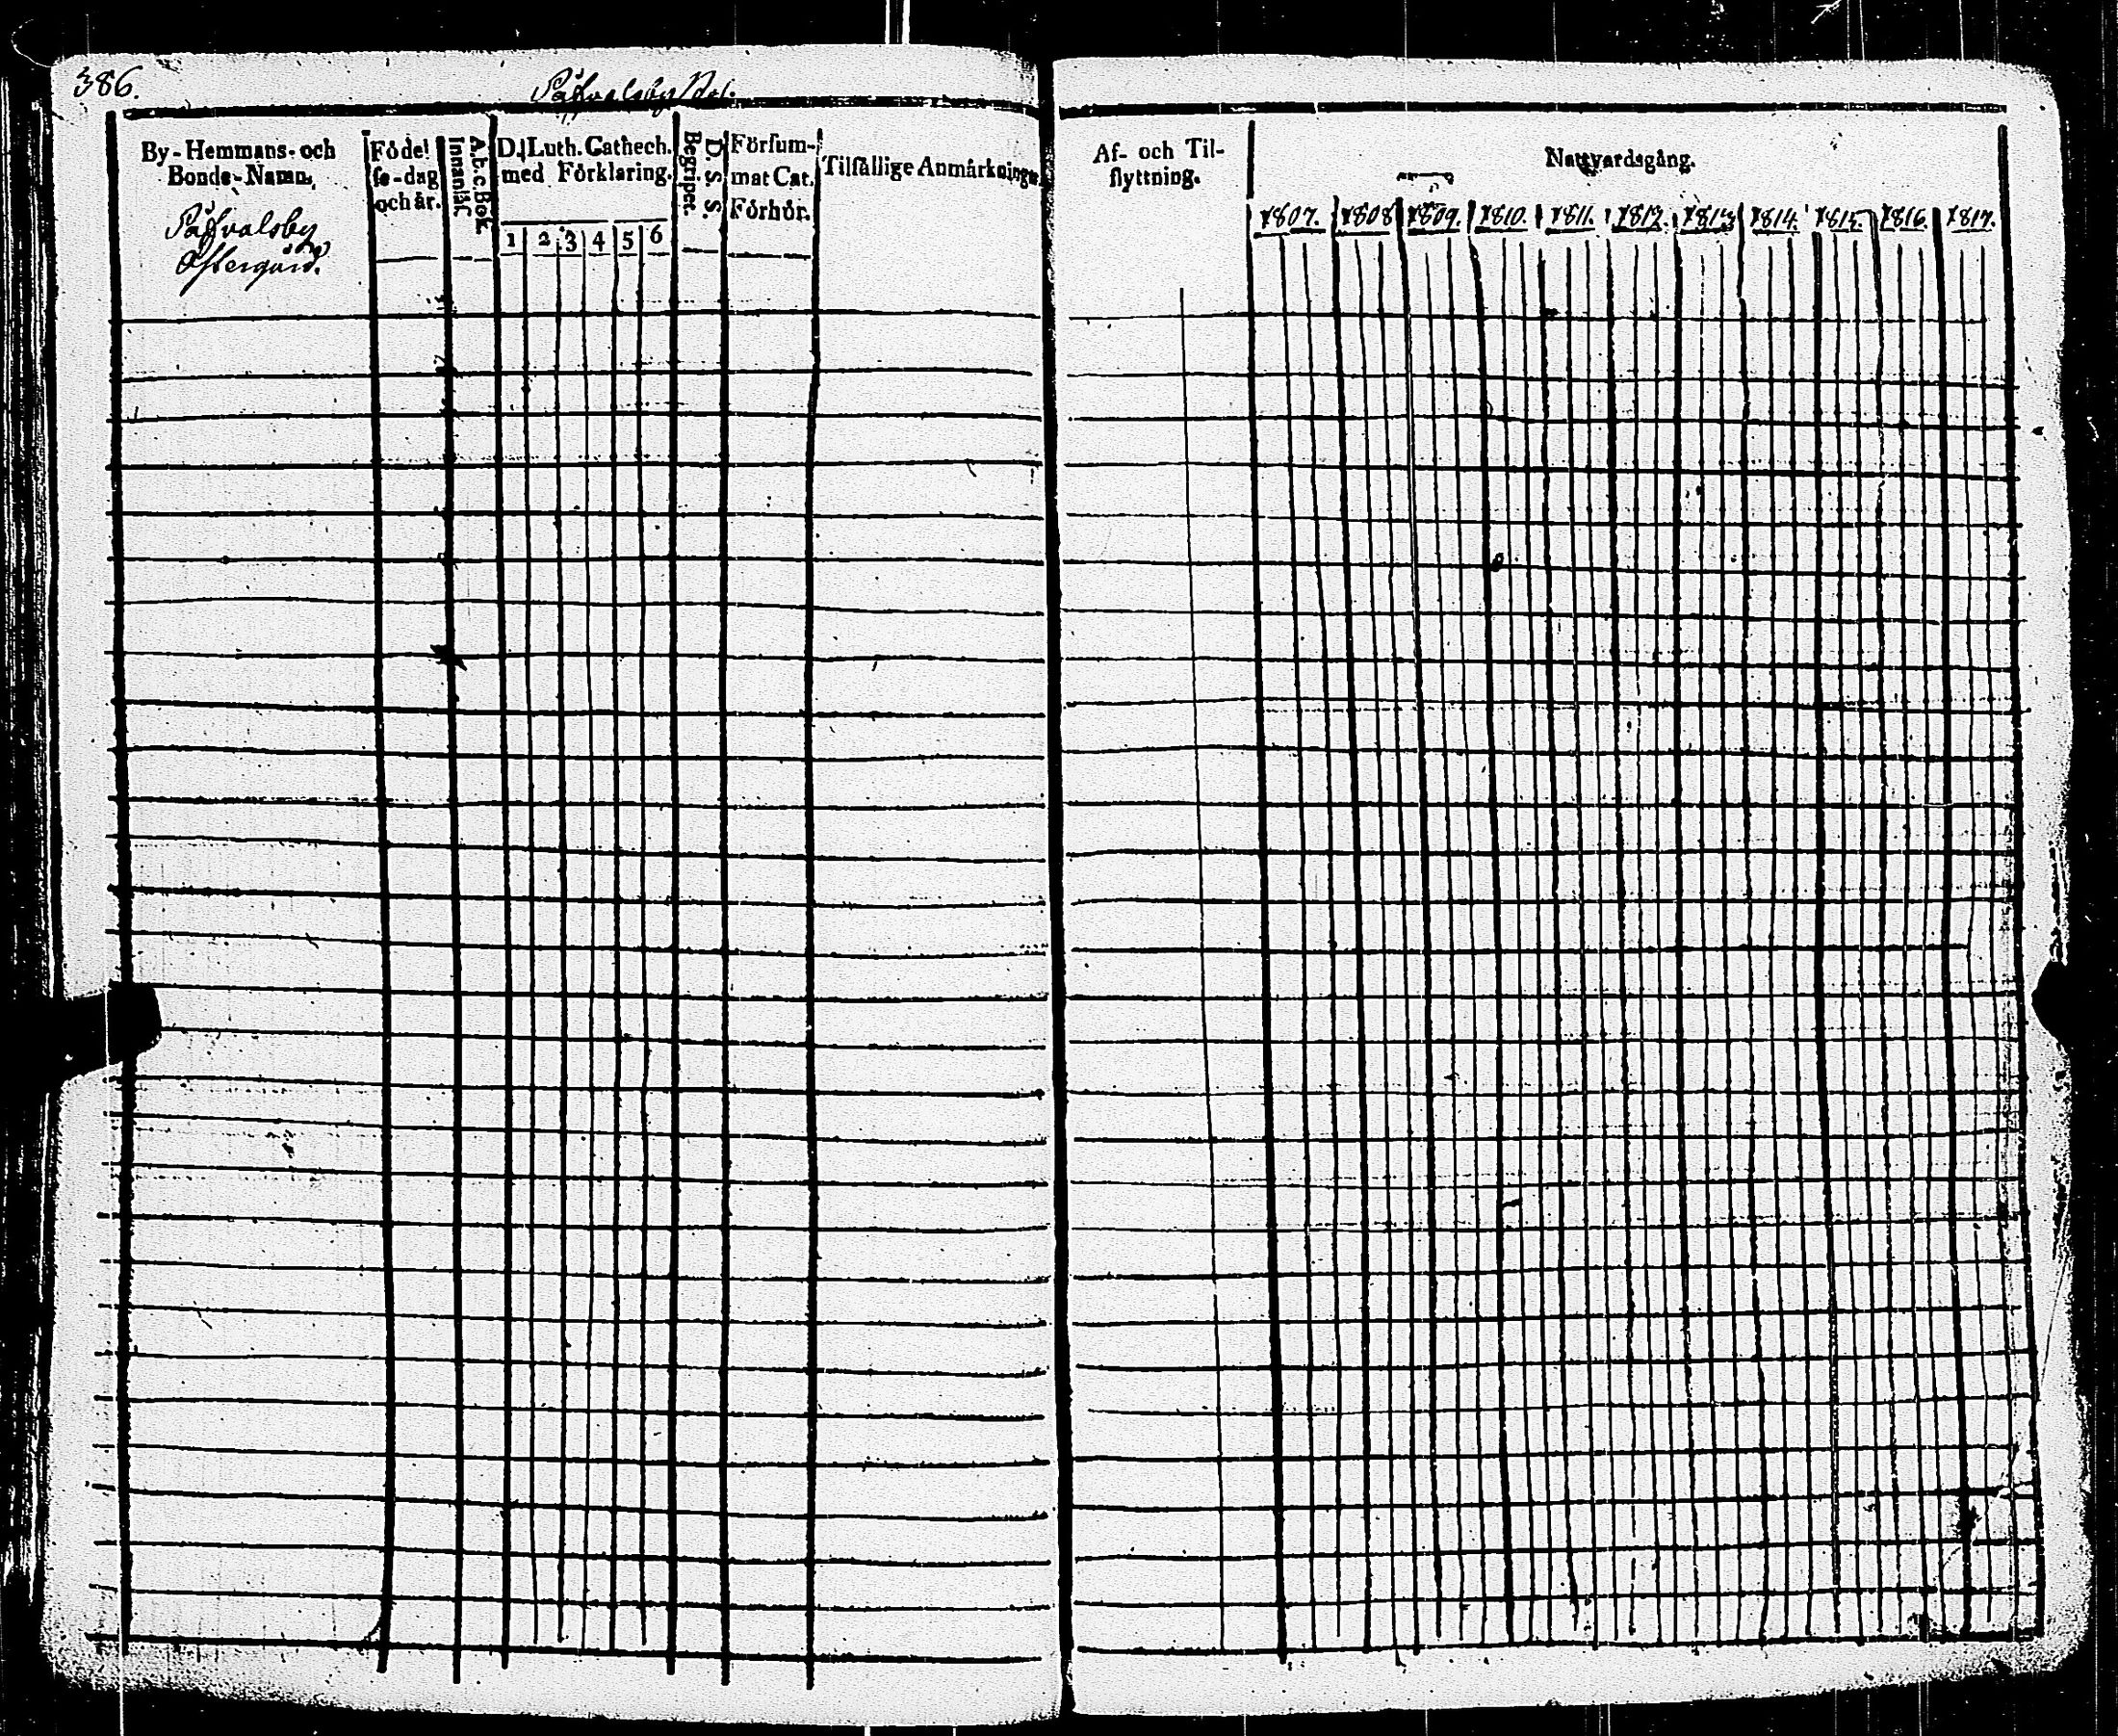 386.
Påfvalsby Rot.
By-Hemmans- och
Bonde-Namn.
Påfvalsby
Östergård.
Födel
se-dag
och år.
A.b.c.Bok
Innanläs.
D. Luth. Cathech.
med Förklaring.
1 2 3 4 5 6
D. S. S.
Begripet.
Försum-
mat Cat.
Förhör.
Tilfällige Anmärkningar
Af- och Til-
flyttning.
Nattvardsgång.
1807. 1808 1809. 1810. 1811. 1812. 1813 1814. 1815. 1816. 1817.